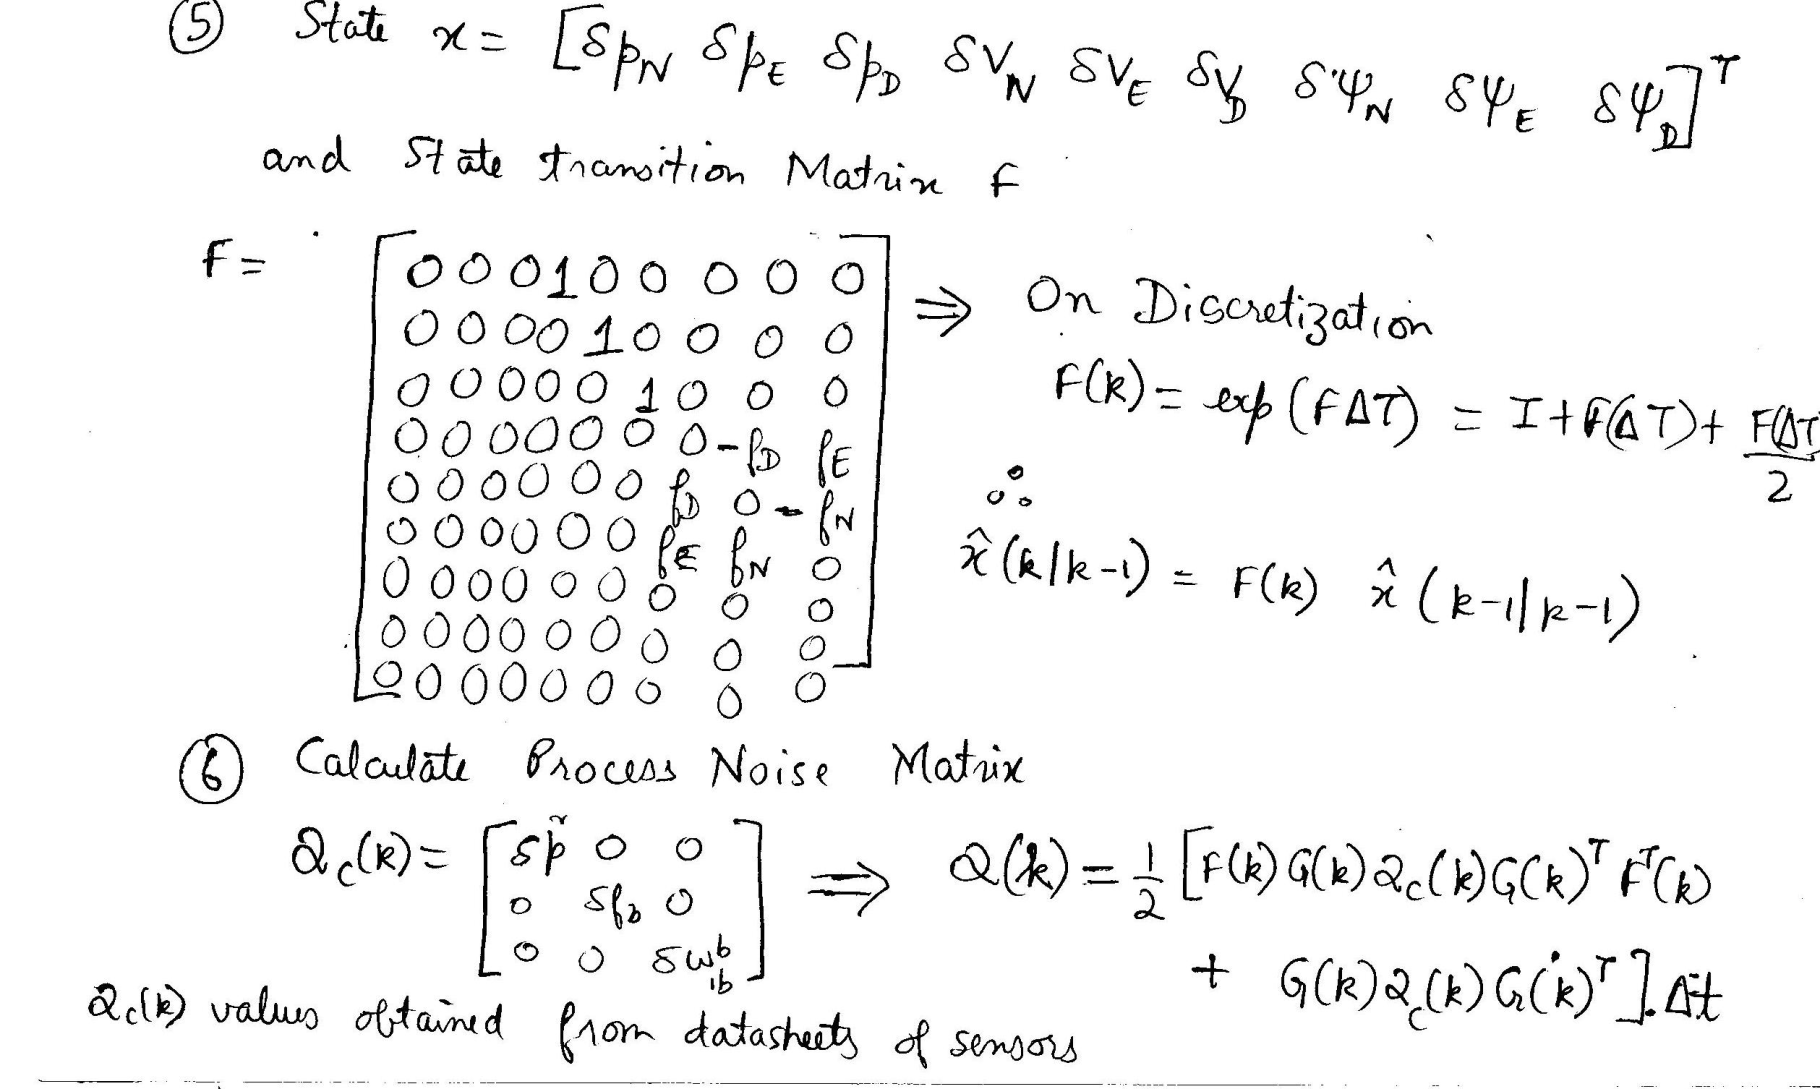 ⑤ State x = [δpN δpE δpD δVN δVE δVD δψN δψE δψD]ᵀ
and State transition Matrix F
F =
0 0 0 1 0 0 0 0 0
0 0 0 0 1 0 0 0 0
0 0 0 0 0 1 0 0 0
0 0 0 0 0 0 0 -fD fE
0 0 0 0 0 0 fD 0 -fN
0 0 0 0 0 0 fE fN 0
0 0 0 0 0 0 0 0 0
0 0 0 0 0 0 0 0 0
0 0 0 0 0 0 0 0 0
⇒ On Discretization
F(k) = exp(FΔT) = I + F(ΔT) + F(ΔT / 2
∴
x̂(k|k-1) = F(k) x̂(k-1|k-1)
⑥ Calculate Process Noise Matrix
Qc(k) =
δp̃ 0 0
0 δfb 0
0 0 δωᵇib
⇒ Q(k) = 1/2 [F(k) G(k) Qc(k) G(k)ᵀ Fᵀ(k)
+ G(k) Qc(k) G(k)ᵀ].Δt
Qc(k) values obtained from datasheets of sensors